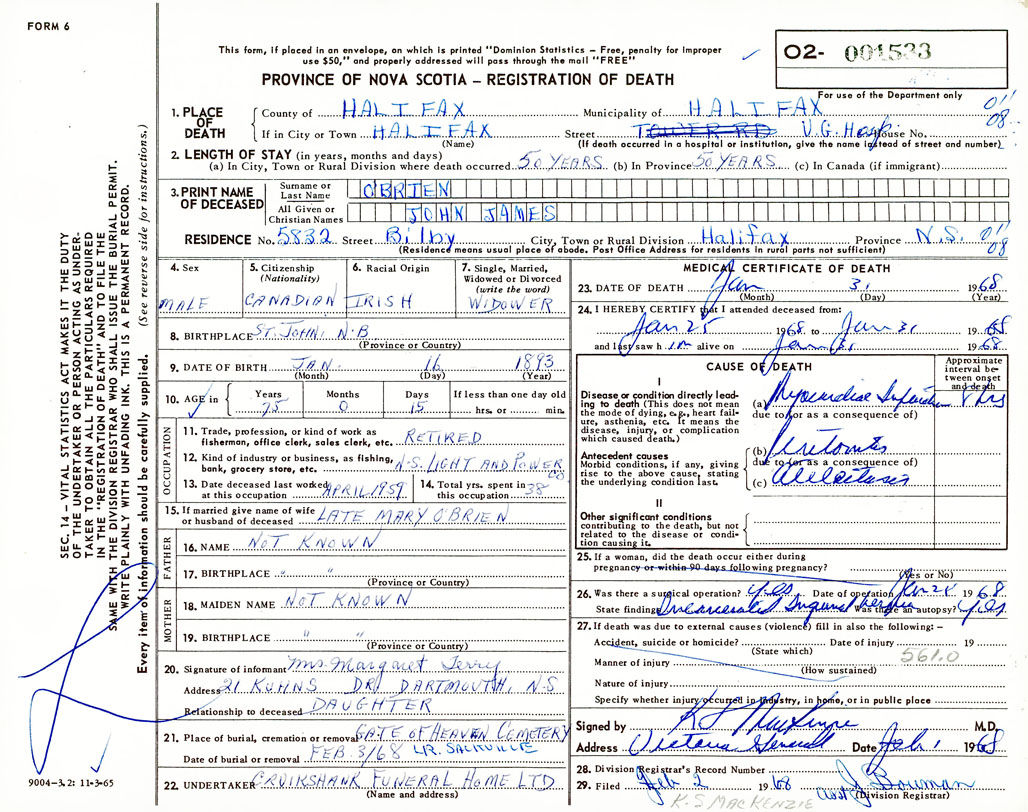 FORM 6
This form, if placed in an envelope, on which is printed "Dominion Statistics – Free, penalty for improper
use $50," and properly addressed will pass through the mail "FREE"
PROVINCE OF NOVA SCOTIA – REGISTRATION OF DEATH
O2- 001533
For use of the Department only
SEC. 14 – VITAL STATISTICS ACT MAKES IT THE DUTY
OF THE UNDERTAKER OR PERSON ACTING AS UNDER-
TAKER TO OBTAIN ALL THE PARTICULARS REQUIRED
IN THE "REGISTRATION OF DEATH" AND TO FILE THE
SAME WITH THE DIVISION REGISTRAR WHO SHALL ISSUE THE BURIAL PERMIT.
WRITE PLAINLY WITH UNFADING INK. THIS IS A PERMANENT RECORD.
Every item of information should be carefully supplied. (See reverse side for instructions.)
1. PLACE OF DEATH
County of HALIFAX Municipality of HALIFAX 011 08
If in City or Town HALIFAX Street TOWER RD V.G. Hosp House No.
(Name) (If death occurred in a hospital or institution, give the name instead of street and number)
2. LENGTH OF STAY (in years, months and days)
(a) In City, Town or Rural Division where death occurred 50 YEARS (b) In Province 50 YEARS (c) In Canada (if immigrant)
3. PRINT NAME OF DECEASED
Surname or Last Name O'BRIEN
All Given or Christian Names JOHN JAMES
RESIDENCE No. 5832 Street Bilby City, Town or Rural Division Halifax Province N.S. 011 08
(Residence means usual place of abode. Post Office Address for residents in rural parts not sufficient)
4. Sex MALE
5. Citizenship (Nationality) CANADIAN
6. Racial Origin IRISH
7. Single, Married, Widowed or Divorced (write the word) WIDOWER
8. BIRTHPLACE ST. JOHN, N.B
(Province or Country)
9. DATE OF BIRTH JAN. 16 1893
(Month) (Day) (Year)
10. AGE in Years 75 Months 0 Days 15 If less than one day old hrs. or min.
OCCUPATION
11. Trade, profession, or kind of work as fisherman, office clerk, sales clerk, etc. RETIRED
12. Kind of industry or business, as fishing, bank, grocery store, etc. N.S. LIGHT AND POWER
13. Date deceased last worked at this occupation APRIL 1959
14. Total yrs. spent in this occupation 38
15. If married give name of wife or husband of deceased LATE MARY O'BRIEN
FATHER
16. NAME NOT KNOWN
17. BIRTHPLACE " "
(Province or Country)
MOTHER
18. MAIDEN NAME NOT KNOWN
19. BIRTHPLACE " "
(Province or Country)
20. Signature of informant Mrs. Margaret Terry
Address 21 KUHNS DR, DARTMOUTH, N.S
Relationship to deceased DAUGHTER
21. Place of burial, cremation or removal GATE OF HEAVEN CEMETERY
Date of burial or removal FEB. 3/68 LR. SACKVILLE
22. UNDERTAKER CRUIKSHANK FUNERAL HOME LTD
(Name and address)
9004-3.2: 11-3-65
MEDICAL CERTIFICATE OF DEATH
23. DATE OF DEATH Jan 31 1968
(Month) (Day) (Year)
24. I HEREBY CERTIFY that I attended deceased from:
Jan 25 1968 to Jan 31 1968
and last saw him alive on Jan 31 1968
CAUSE OF DEATH
Approximate interval between onset and death
I
Disease or condition directly leading to death (This does not mean the mode of dying, e.g., heart failure, asthenia, etc. It means the disease, injury, or complication which caused death.)
(a) Myocardial Infarction
due to (or as a consequence of)
Antecedent causes
Morbid conditions, if any, giving rise to the above cause, stating the underlying condition last.
(b) Peritonitis
due to (or as a consequence of)
(c) Atelectasis
II
Other significant conditions contributing to the death, but not related to the disease or condition causing it.
25. If a woman, did the death occur either during pregnancy or within 90 days following pregnancy?
(Yes or No)
26. Was there a surgical operation? Yes Date of operation Jan 1968
State findings Incarcerated Inguinal hernia Was there an autopsy? Yes
27. If death was due to external causes (violence) fill in also the following: –
Accident, suicide or homicide? Date of injury 19
(State which) 561.0
Manner of injury
(How sustained)
Nature of injury
Specify whether injury occurred in industry, in home, or in public place
Signed by K S MacKenzie M.D.
Address Victoria General Date Feb 1 1968
28. Division Registrar's Record Number
29. Filed Feb 2 1968 J Bowman
(Division Registrar)
K.S MACKENZIE